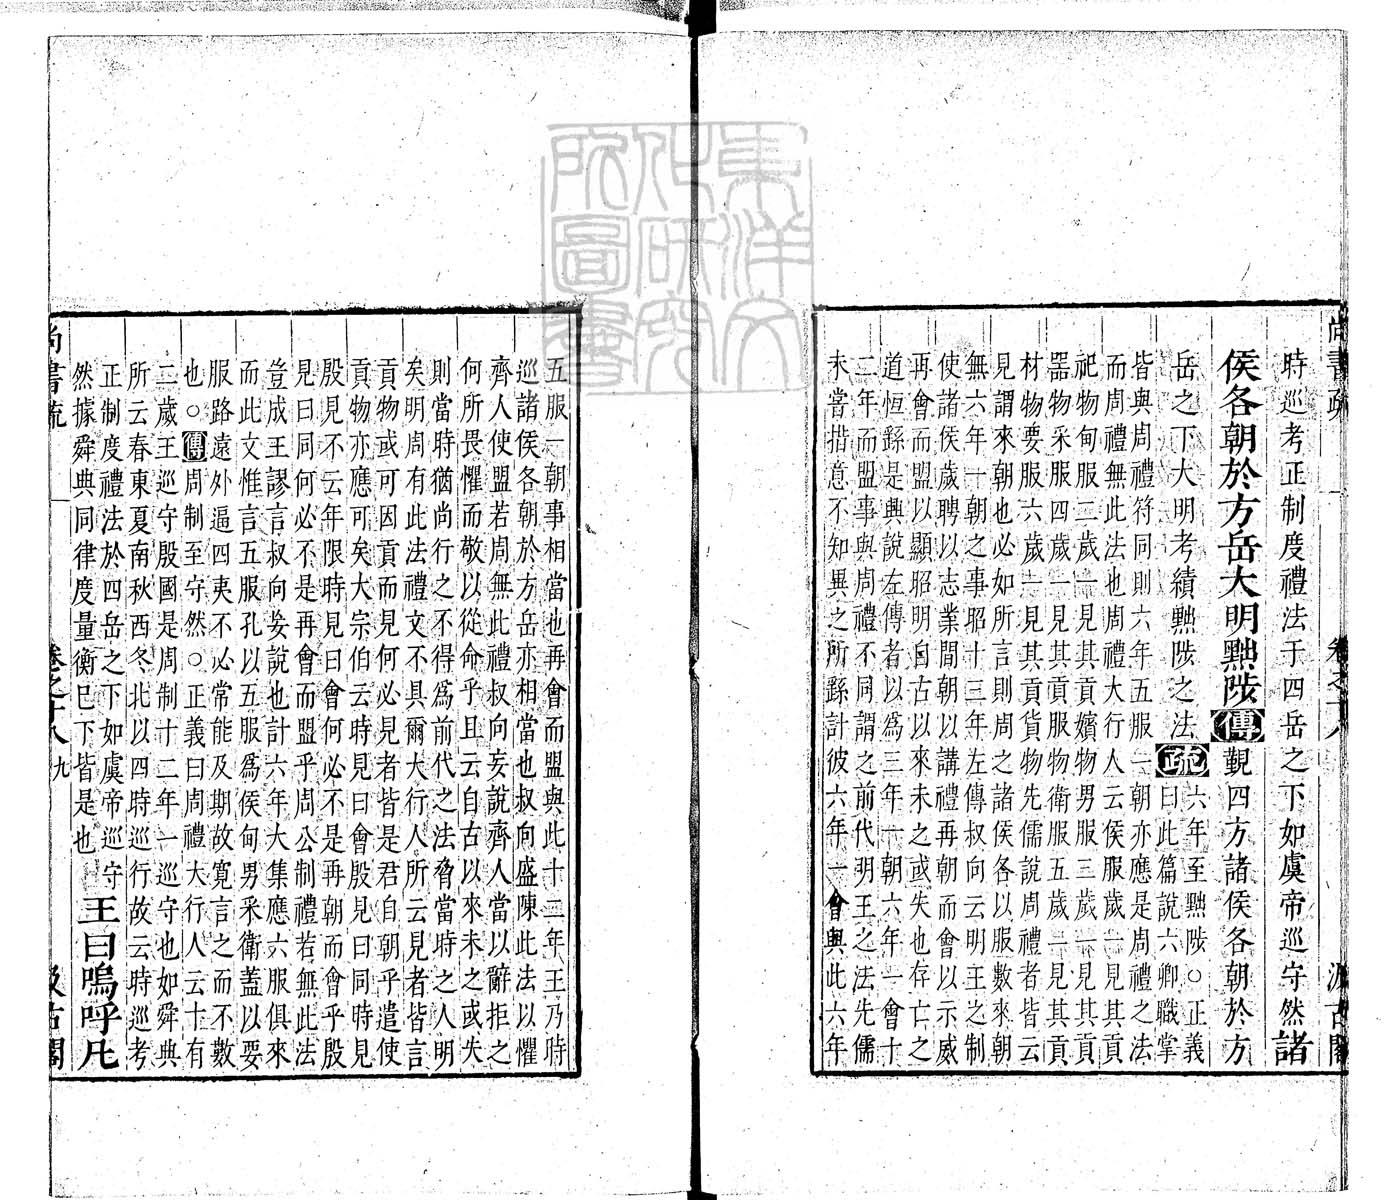 時巡考正制度禮法于四岳之下如虞帝巡守然諸
侯各朝於方岳大明黜陟傳覲四方諸侯各朝於方
岳之下大明考績黜陟之法疏六年至黜陟○正義
曰此篇說六卿職掌
皆與周禮符同則六年五服一朝亦應是周禮之法
而周禮無此法也周禮大行人云侯服歲一見其貢
祀物甸服二歲一見其貢嬪物男服三歲一見其貢
器物采服四歲一見其貢服物衛服五歲一見其貢
材物要服六歲一見其貢貨物先儒說周禮者皆云
見謂來朝也必如所言則周之諸侯各以服數來朝
無六年一朝之事昭十三年左傳叔向云明王之制
使諸侯歲聘以志業間朝以講禮再朝而會以示威
再會而盟以顯昭明自古以來未之或失也存亡之
道恒繇是興說左傳者以爲三年一朝六年一會十
二年而盟事與周禮不同謂之前代明王之法先儒
未嘗措意不知異之所繇計彼六年一會與此六年
五服一朝事相當也再會而盟與此十二年王乃時
巡諸侯各朝於方岳亦相當也叔向盛陳此法以懼
齊人使盟若周無此禮叔向妄說齊人當以辭拒之
何所畏懼而敬以從命乎且云自古以來未之或失
則當時猶尚行之不得爲前代之法脅當時之人明
矣明周有此法禮文不具爾大行人所云見者皆言
貢物或可因貢而見何必見者皆是君自朝乎遣使
貢物亦應可矣大宗伯云時見曰會殷見曰同時見
殷見不云年限時見曰會何必不是再朝而會乎殷
見曰同何必不是再會而盟乎周公制禮若無此法
豈成王謬言叔向妄說也計六年大集應六服俱來
而此文惟言五服孔以五服爲侯甸男采衛蓋以要
服路遠外逼四夷不必常能及期故寬言之而不數
也○傳周制至守然○正義曰周禮大行人云十有
二歲王巡守殷國是周制十二年一巡守也如舜典
所云春東夏南秋西冬北以四時巡行故云時巡考
正制度禮法於四岳之下如虞帝巡守
然據舜典同律度量衡已下皆是也王曰嗚呼凡
卷之十八
九
汲古閣